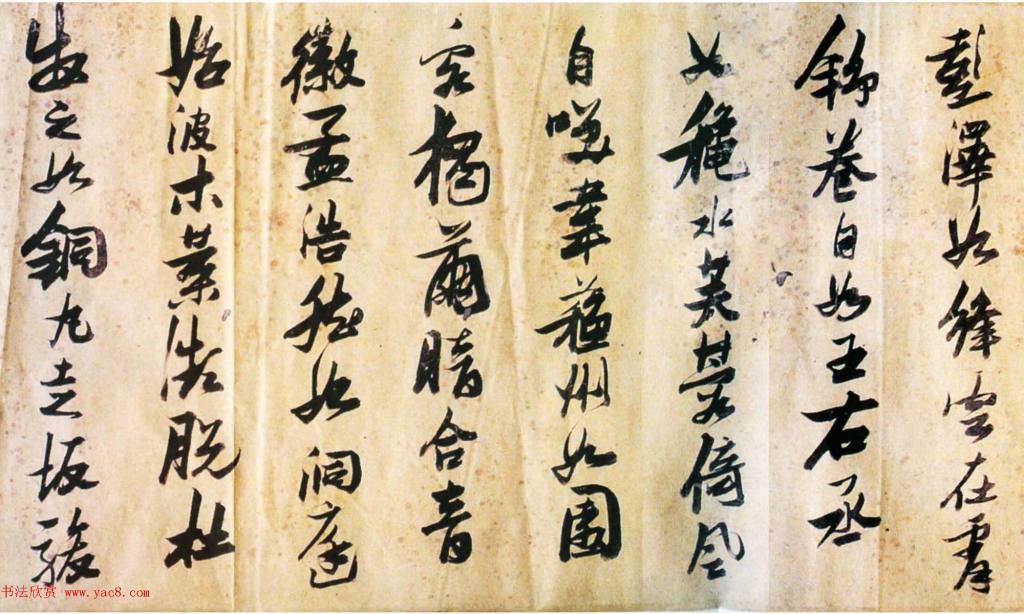 彭澤如絳雲在霄
舒卷自如王右丞
如穐水芙蓉倚風
自咲韋蘇州如園
客獨繭暗合音
徽孟浩然如洞庭
始波木葉微脫杜
牧之如銅丸走坂駿
书法欣赏 www.yac8.com